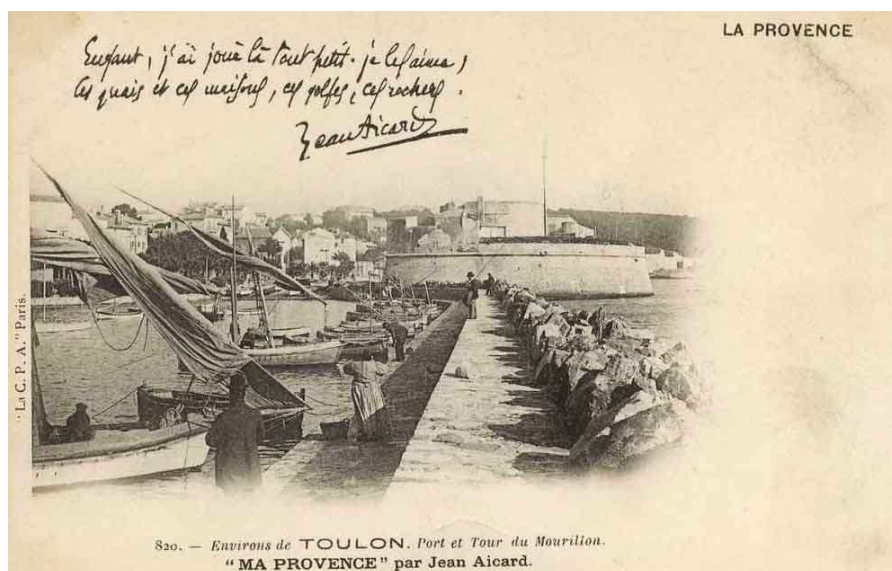 LA PROVENCE
Enfant, j'ai joué là tout petit. je les aime,
Ces quais et ces maisons, ces golfes, ces rochers.
Jean Aicard
"La C. P. A." Paris.
820. — Environs de TOULON. Port et Tour du Mourillon.
"MA PROVENCE" par Jean Aicard.